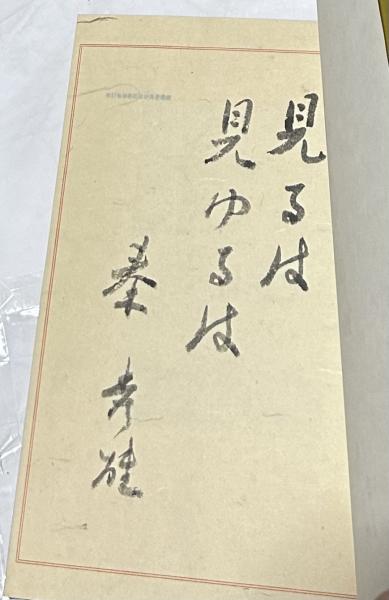 見るは
見ゆるは
秦 孝雄